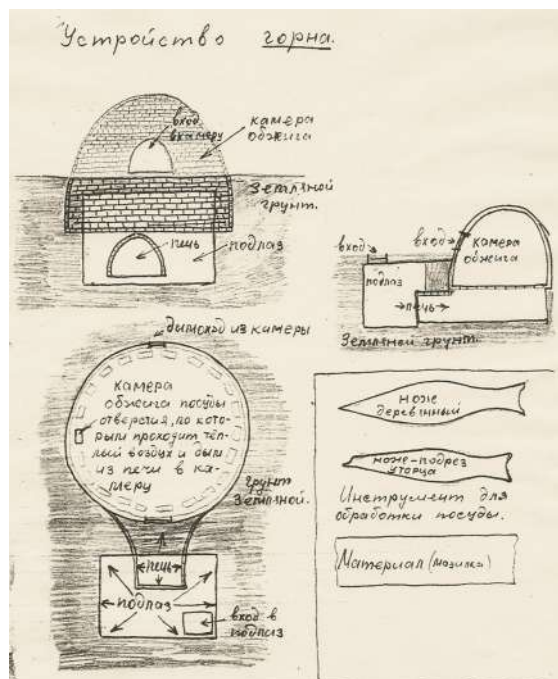 Устройство горна.
вход
в камеру
камера
обжига
Земляной
грунт.
печь
подлаз
вход
вход
камера
обжига
подлаз
печь
Земляной грунт.
дымоход из камеры
камера
обжига посуды
отверстия, по кото-
рым проходит тёп-
лый воздух и дым
из печи в ка-
меру
грунт
Земляной.
печь
подлаз
вход в
подлаз
ноже
деревянный
ноже-подрез
уторца
Инструмент для
обработки посуды.
Материал (мазилка)